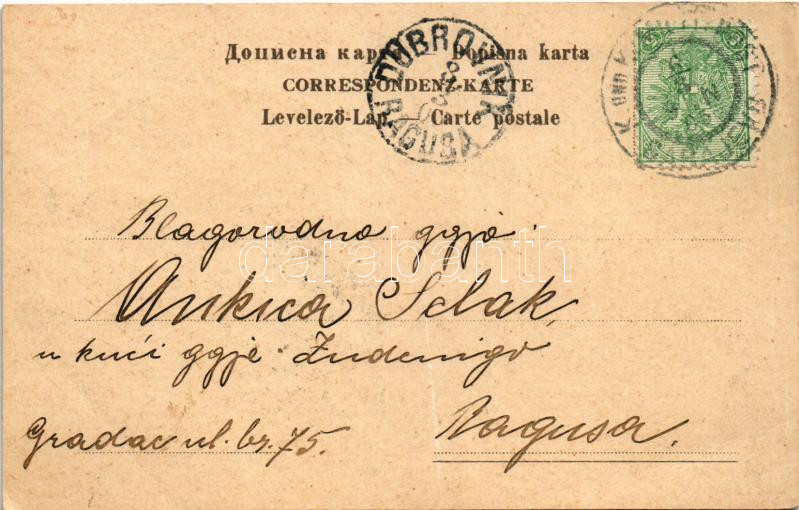 Дописна карта Dopisna karta
CORRESPONDENZ-KARTE
Levelező-Lap. Carte postale
DUBROVNIK
RAGUSA
K. UND K.
5
5
Blagorodna ggja
Ankica Selak,
darabanth
u kući ggje Zudenigo
Gradac ul. br. 75.
Ragusa.